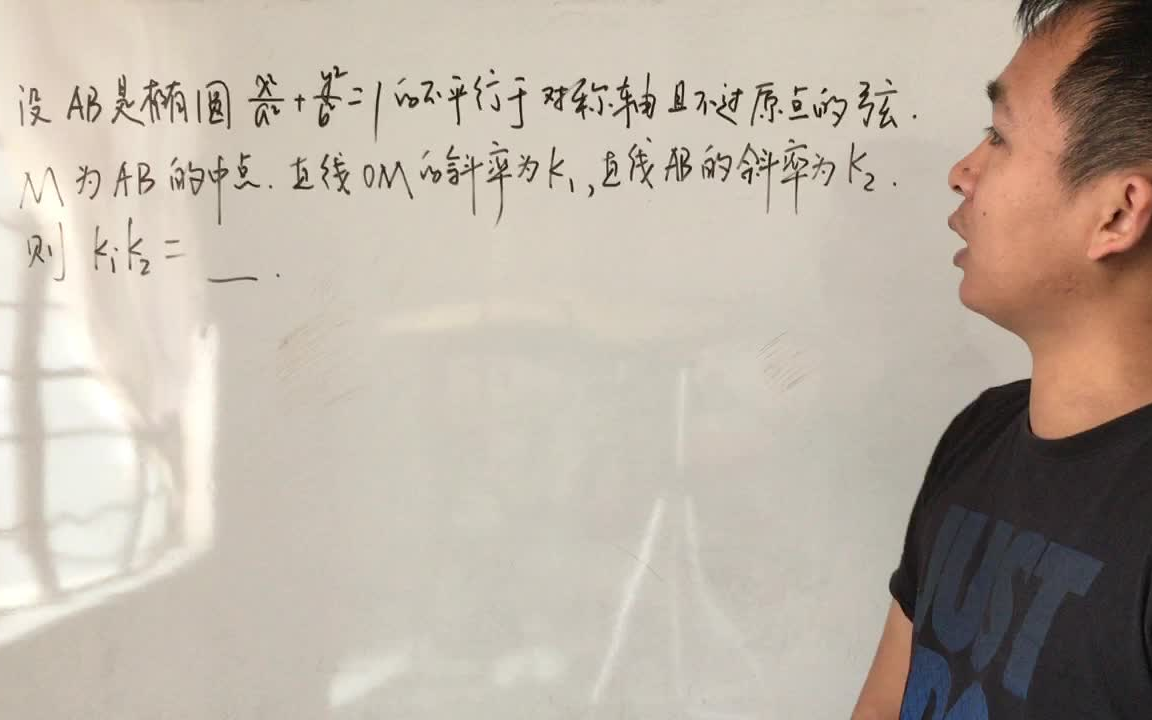 设 AB 是椭圆 x²/a² + y²/b² = 1 的不平行于对称轴且不过原点的弦.
M 为 AB 的中点. 直线 OM 的斜率为 k₁, 直线 AB 的斜率为 k₂.
则 k₁k₂ = __ .
JUST
DO